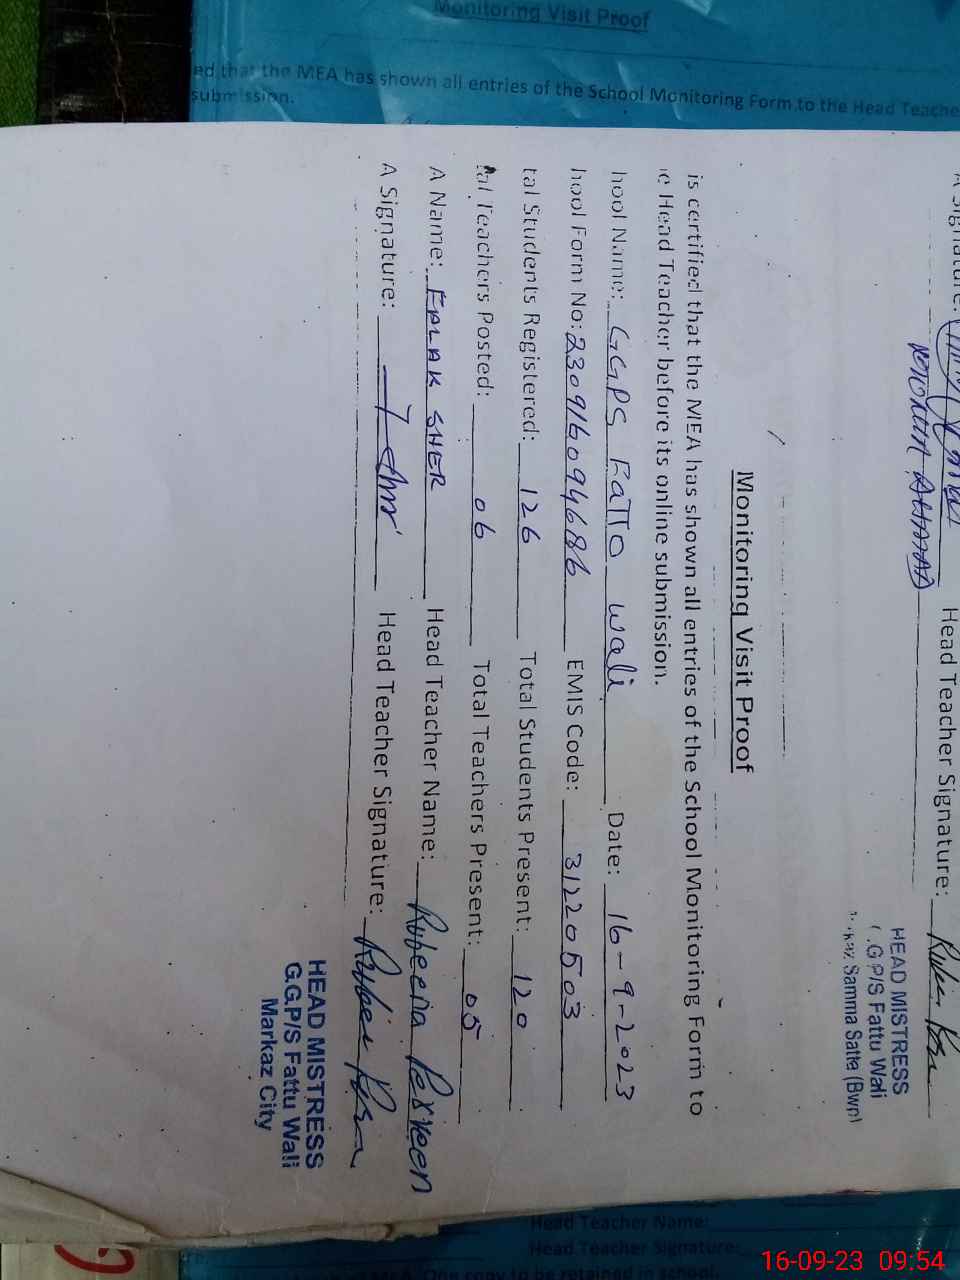 Monitoring Visit Proof
ed that the MEA has shown all entries of the School Monitoring Form to the Head Teache
submission.
Head Teacher Signature:
HEAD MISTRESS
G.G.P/S Fattu Wali
Samma Satta (Bwp)
Monitoring Visit Proof
is certified that the MEA has shown all entries of the School Monitoring Form to
e Head Teacher before its online submission.
hool Name: GGPS FaTTO wali Date: 16-9-2023
hool Form No: 230916094686 EMIS Code: 31220503
tal Students Registered: 126 Total Students Present: 120
tal Teachers Posted: 06 Total Teachers Present: 05
A Name: FALAK SHER Head Teacher Name: Rubeena Perveen
A Signature: Head Teacher Signature:
HEAD MISTRESS
G.G.P/S Fattu Wali
Markaz City
Head Teacher Name:
Head Teacher Signature:
One copy to be retained in school.
16-09-23 09:54